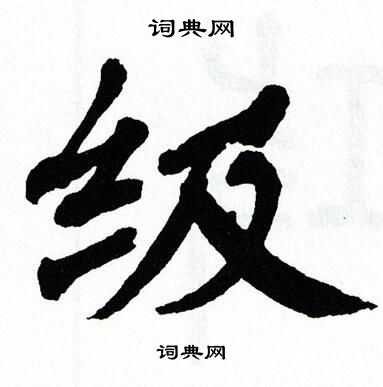 词典网
级
词典网